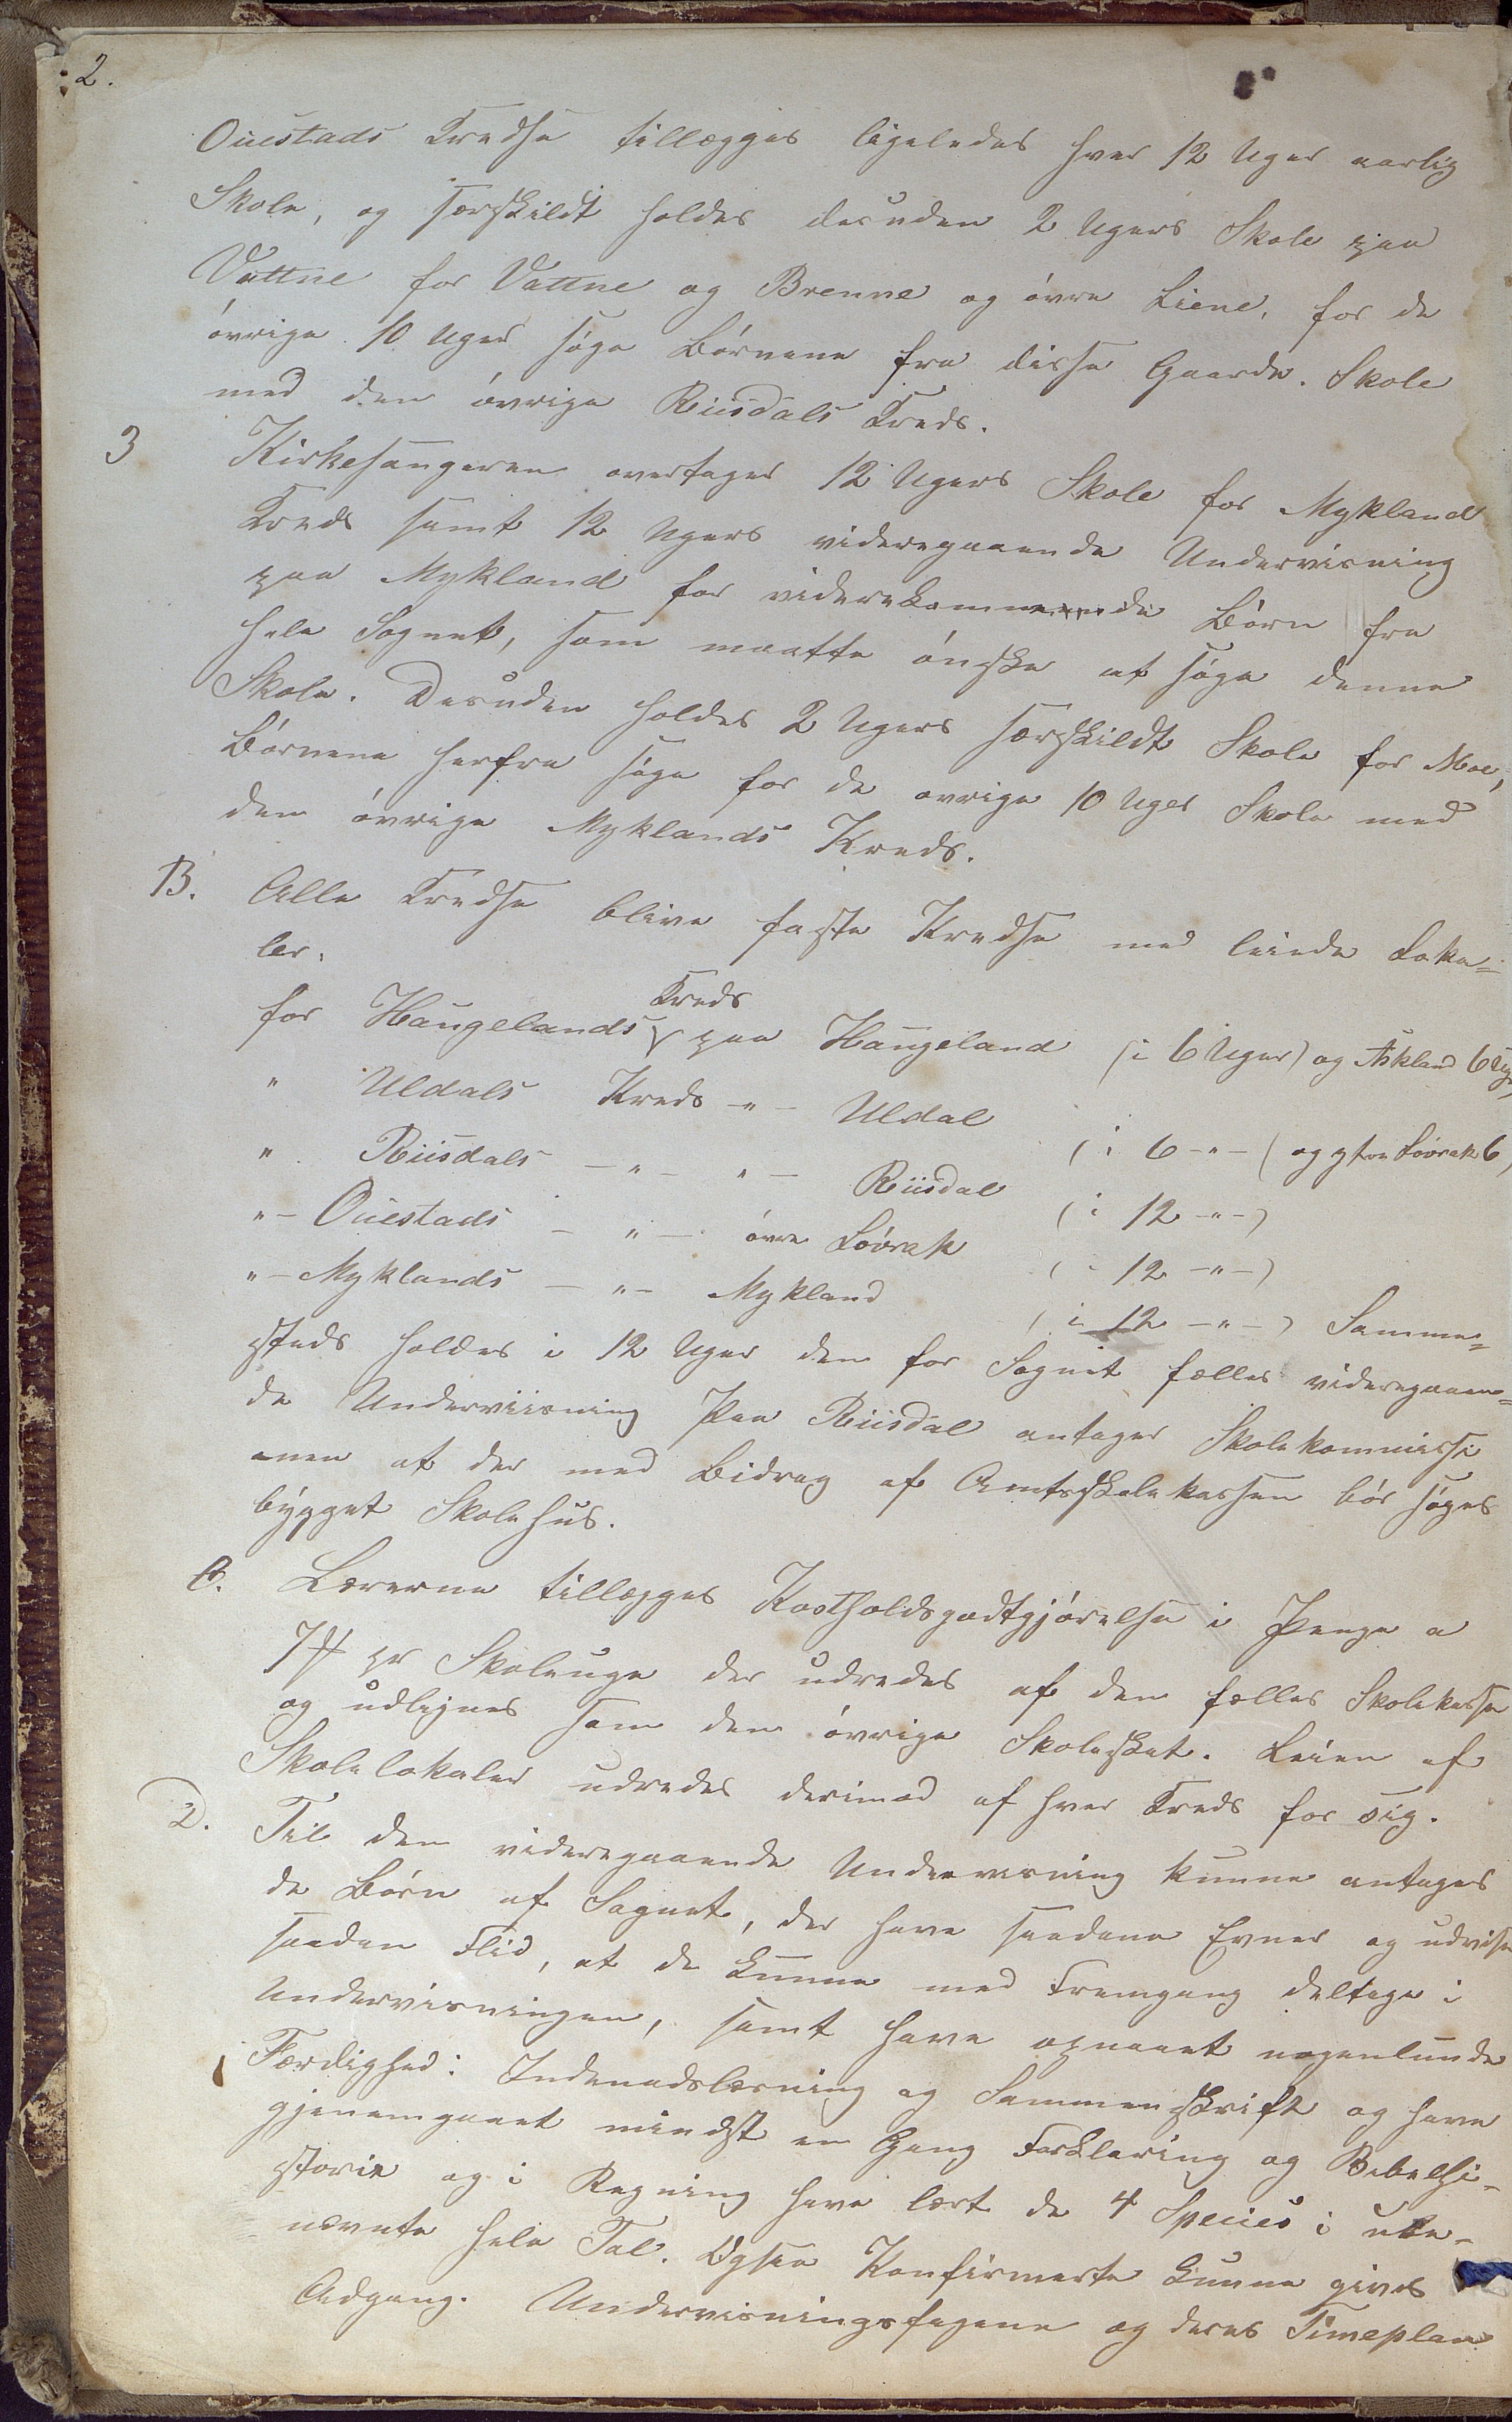 2.
Ouestads Kredse tillægges ligeledes hver 12 Uger aarlig
Skole, og særskildt holdes desuden 2 Ugers Skole paa
Vattne for Vattne og Brenne og övre Liene, for de
övrige 10 Uger søge Börnene fra disse Gaarde Skole
med den övrige Riisdals Kreds.
3 Kirkesangeren overtager 12 Ugers Skole for Mykland
Kreds samt 12 Ugers videregaaende Undervisning
paa Mykland for viderekomne de Börn fra
hele Sognet, som maatte önske at søge denne
Skole. Desuden holdes 2 Ugers særskildt Skole for Moe,
Börnene herfra søge for de övrige 10 Uger Skole med
den övrige Myklands Kreds.
B. Alle Kredse blive faste Kredse med leiede Loka=
ler.
Kreds
for Haugelands paa Haugeland (i 6 Uger) og Askland 6 Ug,
" Uldals Kreds -"- Uldal (i 6 -"- ( og ytre Lövrak 6,
" Riisdals -"- "- Riisdal (i 12 -"-)
"- Ouestads -"- övre Lövrak (- 12 -"-)
"- Myklands -"- Mykland (i 12 -"-) Samme=
steds holdes i 12 Uger den for Sognet fælles videregaaen=
de Underviisning Paa Riisdal antager Skolekommissi
onen at der med Bidrag af Amtsskolekassen bör søges
bygget Skolehus.
C. Lærerne tillægges Kostholdsgodtgjörelse i Penge a
7 ₰ pr Skoleuge der udredes af den fælles Skolekasse
og udlignes som den övrige Skoleskat. Leien af
Skolelokaler udredes derimod af hver Kreds for sig.
D. Til den videregaaende Undervisning kunne antages
de Börn af Sognet, der have saadane Evner og udvise
saadan Flid, at de kunne med Fremgang deltage i
Undervisningen, samt have opnaaet nogenlunde
Færdighed i Indenadslæsning og Sammenskrift og have
gjenemgaaet mindst en Gang Forklaring og Bibelhi-
storie og i Regning have lært de 4 Species i ube-
nævnte hele Tal. Ogsaa Konfirmerte kunne gives
Adgang. Undervisningsfagene og deres Timeplan